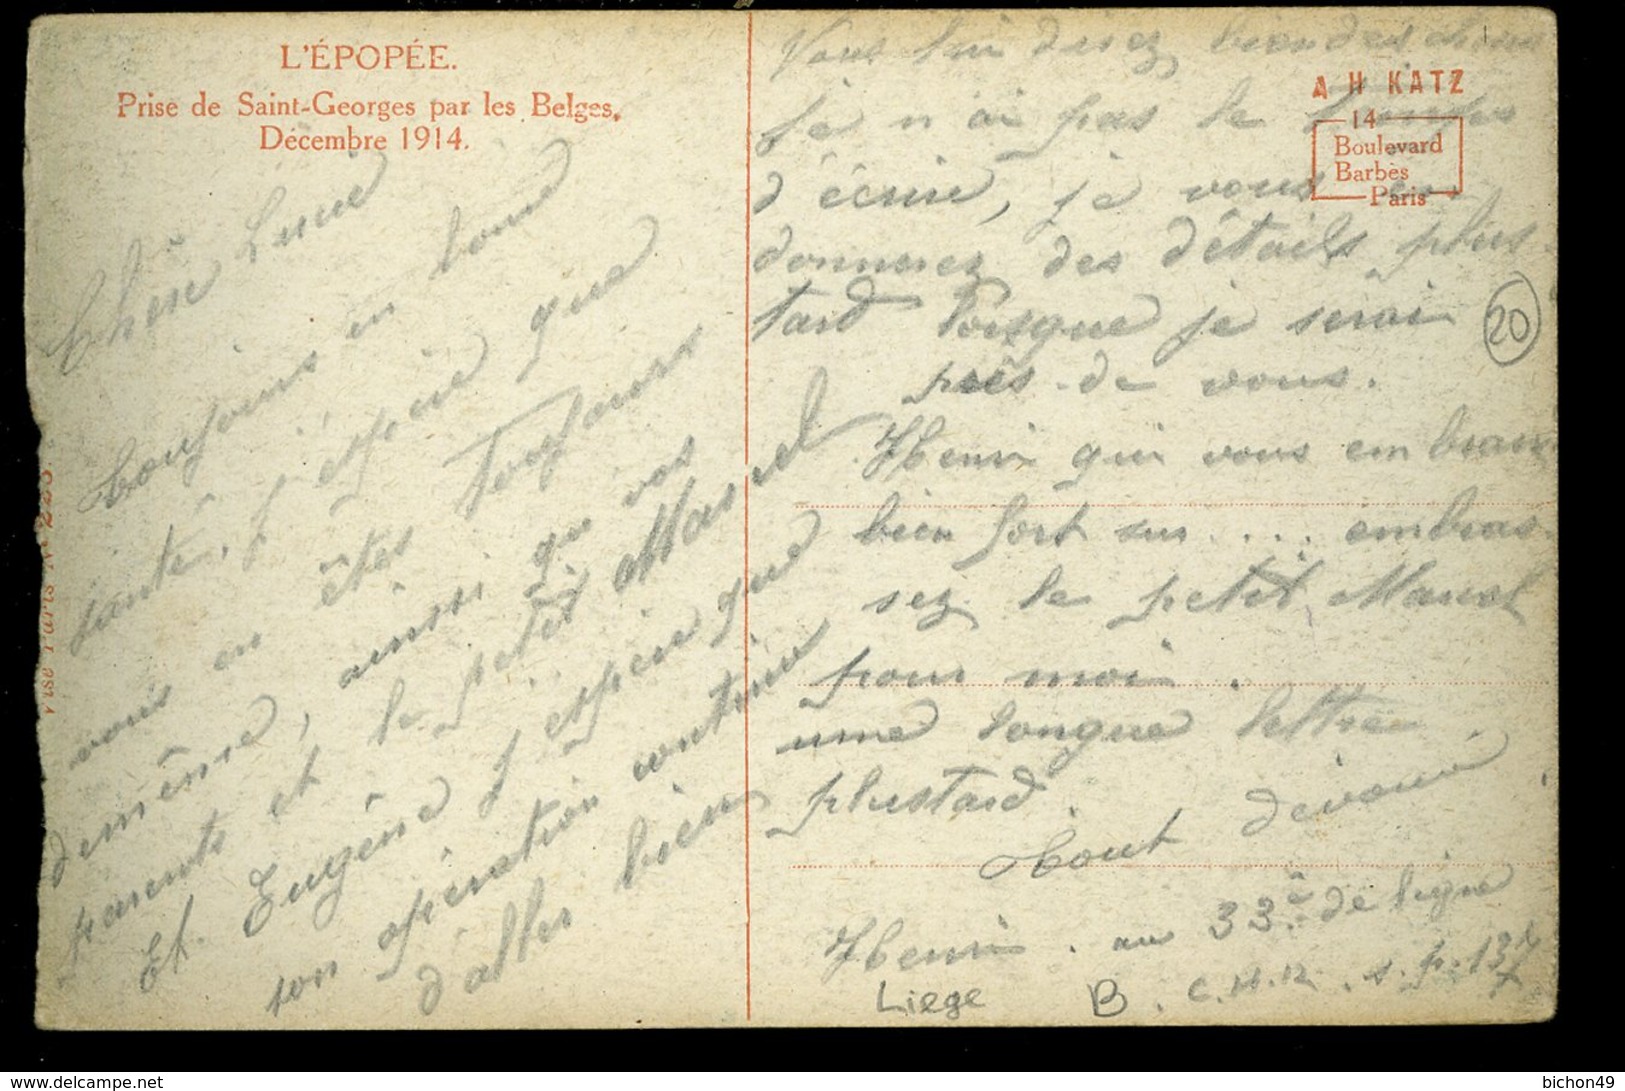 L'ÉPOPÉE.
Prise de Saint-Georges par les Belges,
Décembre 1914.
Visé Paris N° 223
Chère Lucie
toujours en bonne
santé, j'éspère que
vous en êtes toujours
de même, ainssi que vos
parents et le petit Marcel
Et. Eugène j'espère que
son opération continue
d'aller bien
Vous lui direz bien des choses
je n'ai pas le temps
d'écrire, je vous
donnerez des détails plus
tard lorsque je serai
près de vous.
Henri qui vous embrasse
bien fort sur.... embras
sez le petit Marcel
pour moi.
une longue lettre
plustard.
tout dévoué
Henri. au 33è de ligne
Liege B. C.H.R. s. p. 137
A H KATZ
14
Boulevard
Barbès
Paris
20
bichon49